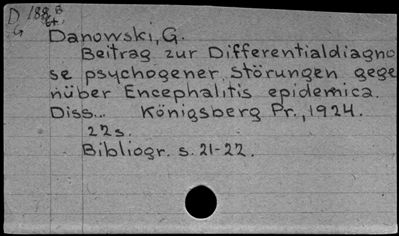 D 188 B
G St.
Danowski, G.
Beitrag zur Differentialdiagno
se psychogener Störungen gege
nüber Encephalitis epidemica.
Diss... Königsberg Pr., 1924.
22s.
Bibliogr. s. 21-22.